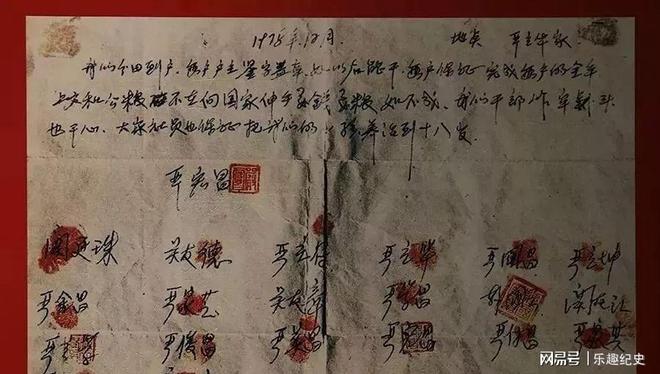 1978年12月 地点 严立华家
我们分田到户，每户户主签字盖章，如以后能干，每户保证完成每户的全年
上交和公粮。不在向国家伸手要钱要粮。如不成，我们干部作牢杀头
也干心，大家社员也保证把我们的小孩养活到十八岁。
严宏昌
关廷珠 关友德 严立符 严立华 严国昌 严立坤
严金昌 严家芝 关友章 严学昌 韩国云 关友江
严俊昌 严美昌 严宏昌 严付昌 严家其
网易号 | 乐趣纪史